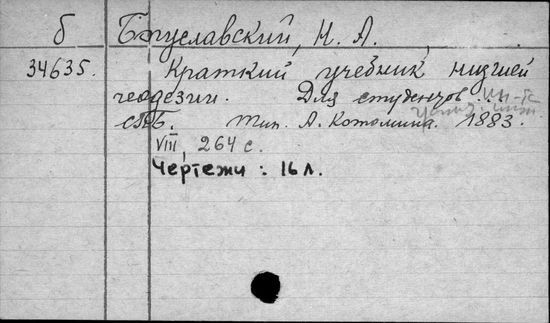 б Богуславский, Н. А.
34635. Краткий учебник низшей
геодезии. Для студентов ...
СПБ. Тип. А. Котомина. 1883.
VIII, 264 с.
Чертежи : 16 л.